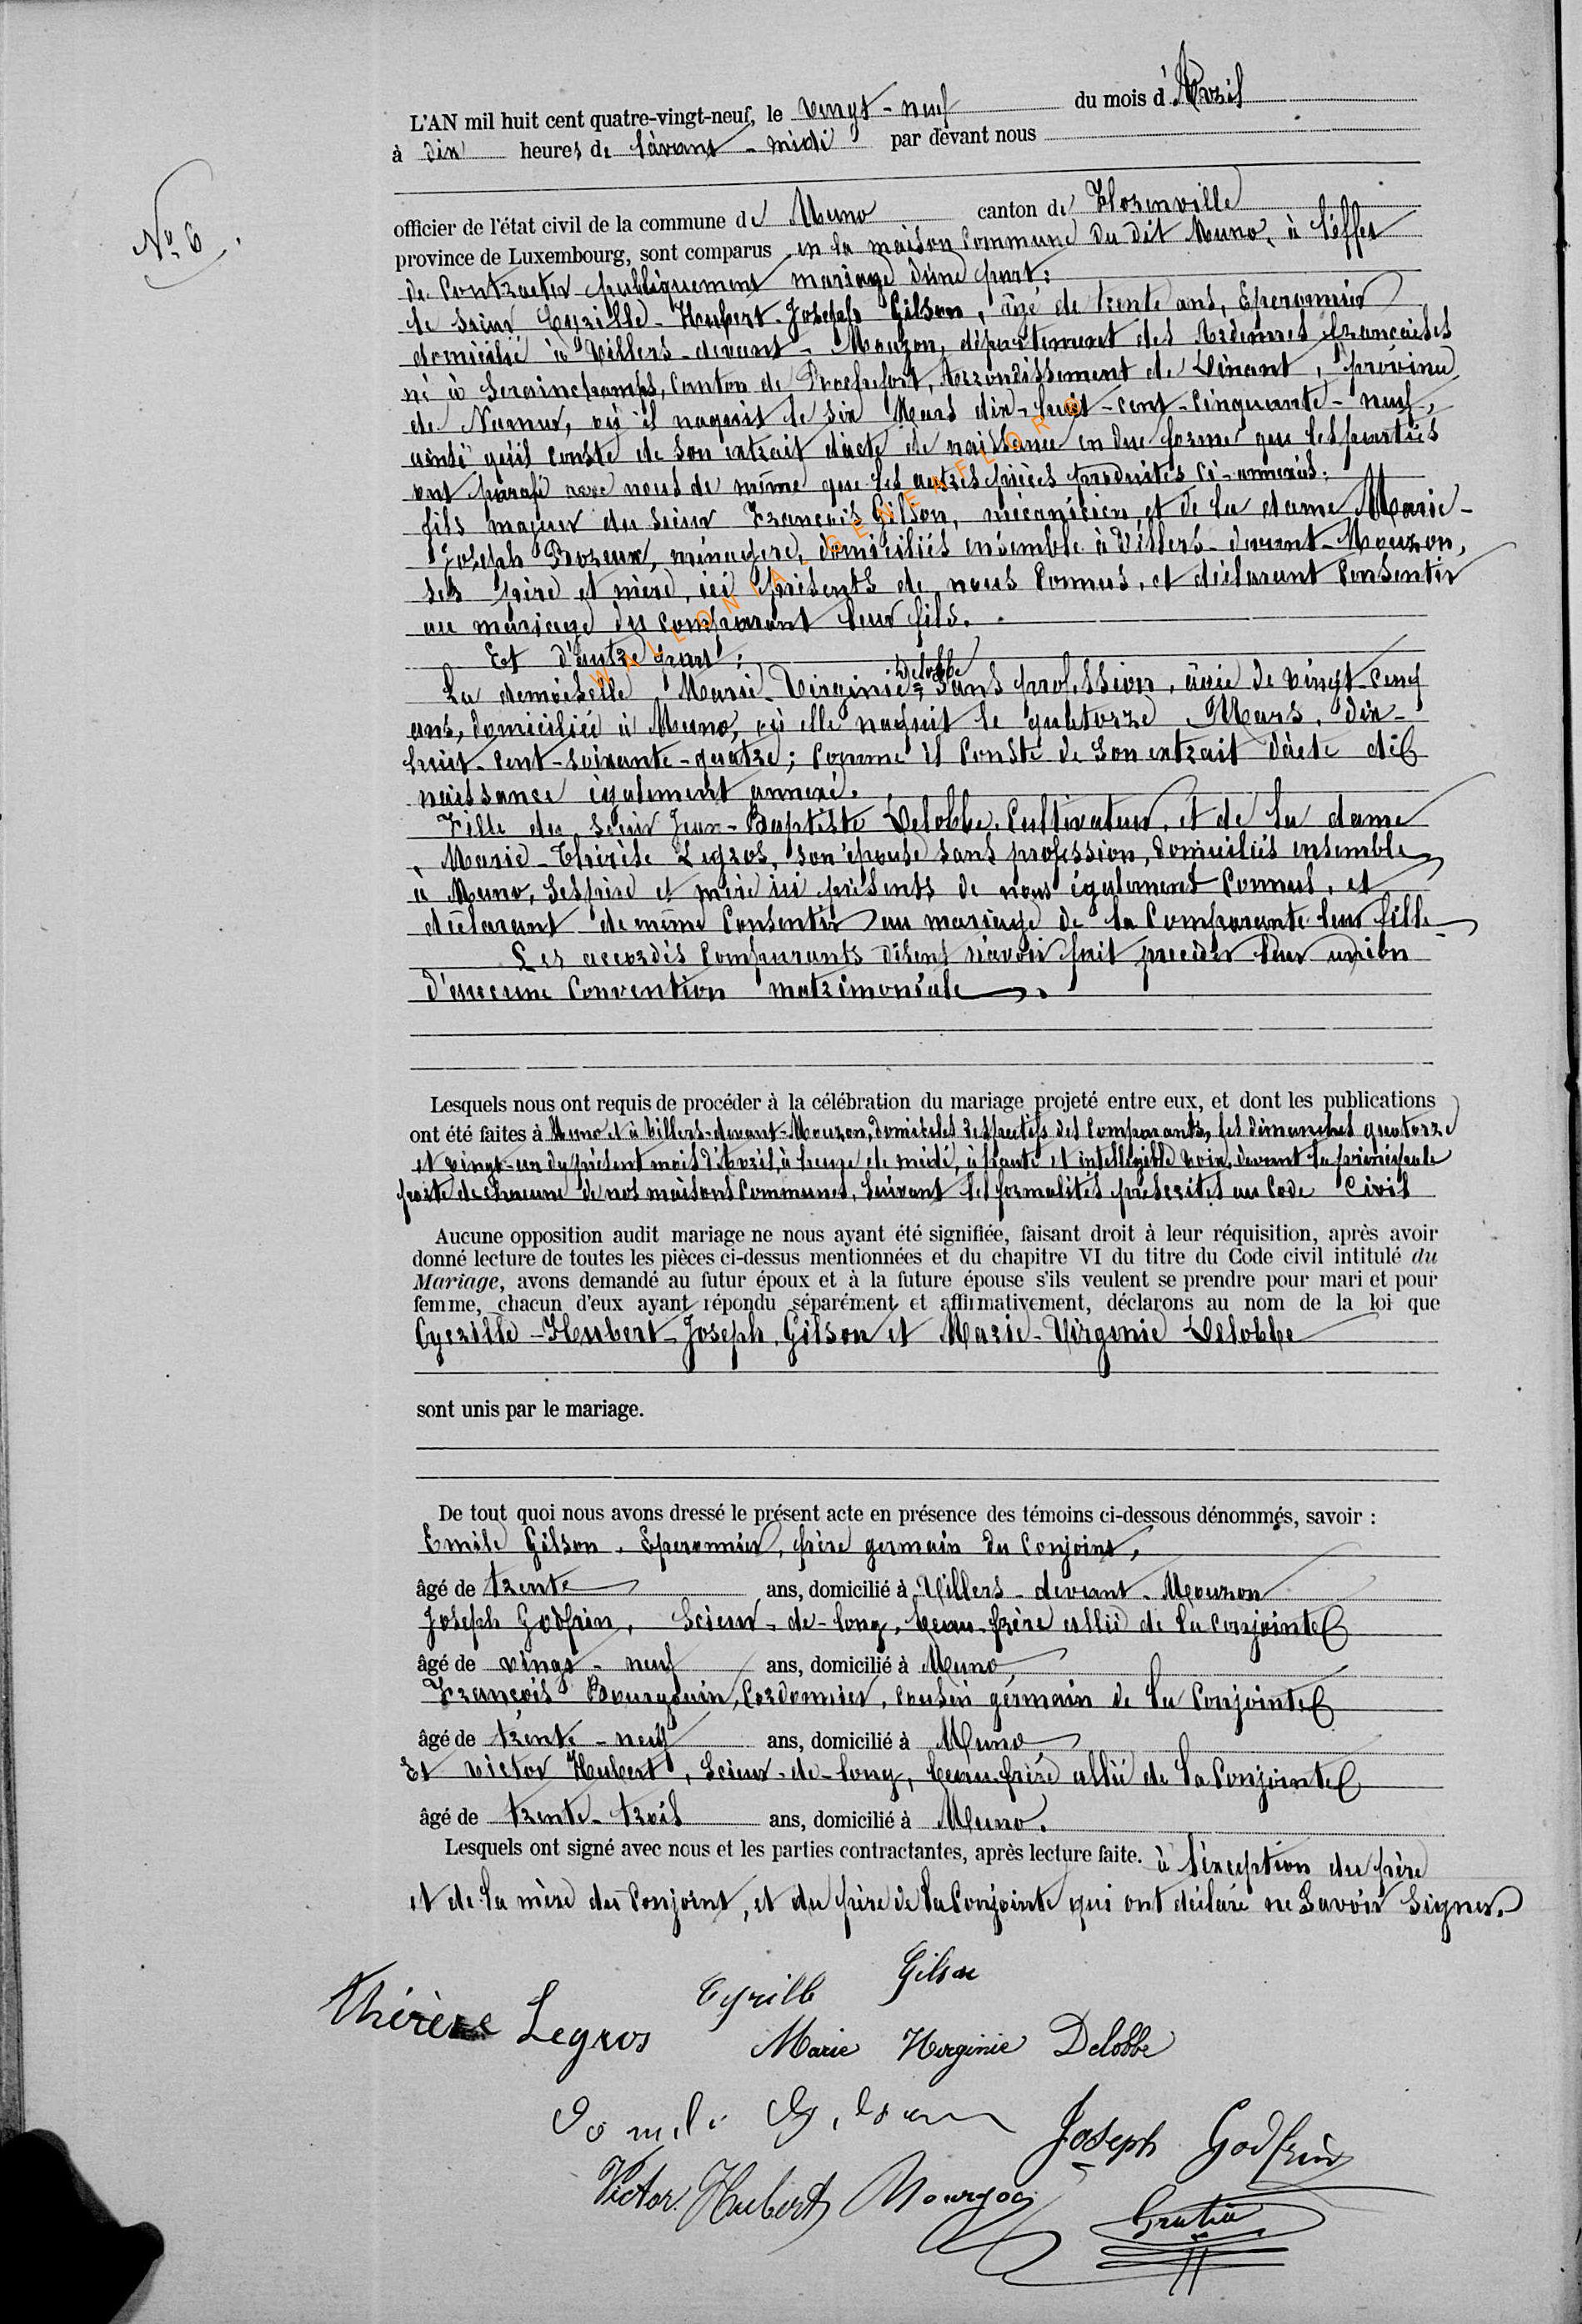 L'AN mil huit cent quatre-vingt-neuf, le vingt-neuf du mois d'Avril
à dix heures de l'avant-midi par devant nous
officier de l'état civil de la commune de Muno canton de Florenville
N° 6.
province de Luxembourg, sont comparus en la maison Commune du dit Muno, à l'effet
de Contracter publiquement mariage d'une part:
le sieur Cyrille-Hubert-Joseph Gilson, âgé de trente ans, Eperonnier
domicilié à Villers-devant-Mouzon, département des Ardennes françaises
né à Serainchamps, Canton de Rochefort, Arrondissement de Dinant, province
de Namur, où il naquit le six Mars dix-huit-cent-cinquante-neuf,
ainsi qu'il conste de son extrait d'acte de naissance en due forme que les parties
ont parafé avec nous de même que les autres pièces produites ci-annexées:
fils majeur du sieur François Gilson, mécanicien et de la dame Marie-
Joseph Rozeux, ménagère, domiciliés ensemble à Villers-devant-Mouzon,
ses père et mère, ici présents de nous Connus, et déclarant Consentir
au mariage du comparant leur fils.
Et d'autre part:
La demoiselle Marie-Virginie Delobbe sans profession, âgée de vingt-cinq
ans, domiciliée à Muno, où elle naquit le quatorze Mars, dix-
huit-cent-soixante-quatre; Comme il Conste de son extrait d'acte de
naissance également annexé.
Fille du sieur Jean-Baptiste Delobbe, Cultivateur, et de la dame
Marie-Thérèse Legros, son épouse sans profession, domiciliés ensemble
à Muno, ses père et mère ici présents de nous également Connus, et
déclarant de même Consentir au mariage de la Comparante leur fille
Les accordés Comparants disent n'avoir fait précéder leur union
d'aucune Convention matrimoniale.
Lesquels nous ont requis de procéder à la célébration du mariage projeté entre eux, et dont les publications
ont été faites à Muno et à Villers-devant-Mouzon, domiciles respectifs des Comparants, les dimanches quatorze
et vingt-un du présent mois d'Avril, à heure de midi, à haute et intelligible voix, devant la principale
porte de chacune de nos maisons Communes, suivant les formalités préscrites au Code Civil
Aucune opposition audit mariage ne nous ayant été signifiée, faisant droit à leur réquisition, après avoir
donné lecture de toutes les pièces ci-dessus mentionnées et du chapitre VI du titre du Code civil intitulé du
Mariage, avons demandé au futur époux et à la future épouse s'ils veulent se prendre pour mari et pour
femme, chacun d'eux ayant répondu séparément et affirmativement, déclarons au nom de la loi que
Cyrille-Hubert-Joseph Gilson et Marie-Virginie Delobbe
sont unis par le mariage.
De tout quoi nous avons dressé le présent acte en présence des témoins ci-dessous dénommés, savoir :
Emile Gilson, Eperonnier, frère germain du Conjoint,
âgé de trente ans, domicilié à Villers-devant-Mouzon
Joseph Godfrin, Scieur-de-long, beau-frère allié de la conjointe
âgé de vingt-neuf ans, domicilié à Muno,
François Bourguin, Cordonnier, cousin germain de la Conjointe
âgé de trente-neuf ans, domicilié à Muno
Et Victor Hubert, Scieur-de-long, beau-frère allié de la Conjointe
âgé de trente-trois ans, domicilié à Muno.
Lesquels ont signé avec nous et les parties contractantes, après lecture faite. à l'exception du père
et de la mère du Conjoint, et du père de la Conjointe qui ont déclaré ne savoir signer.
Cyrille Gilson
Thérèse Legros
Marie Virginie Delobbe
Joseph Godfrin
Victor Hubert
WALLONIA-GENEAFLORE